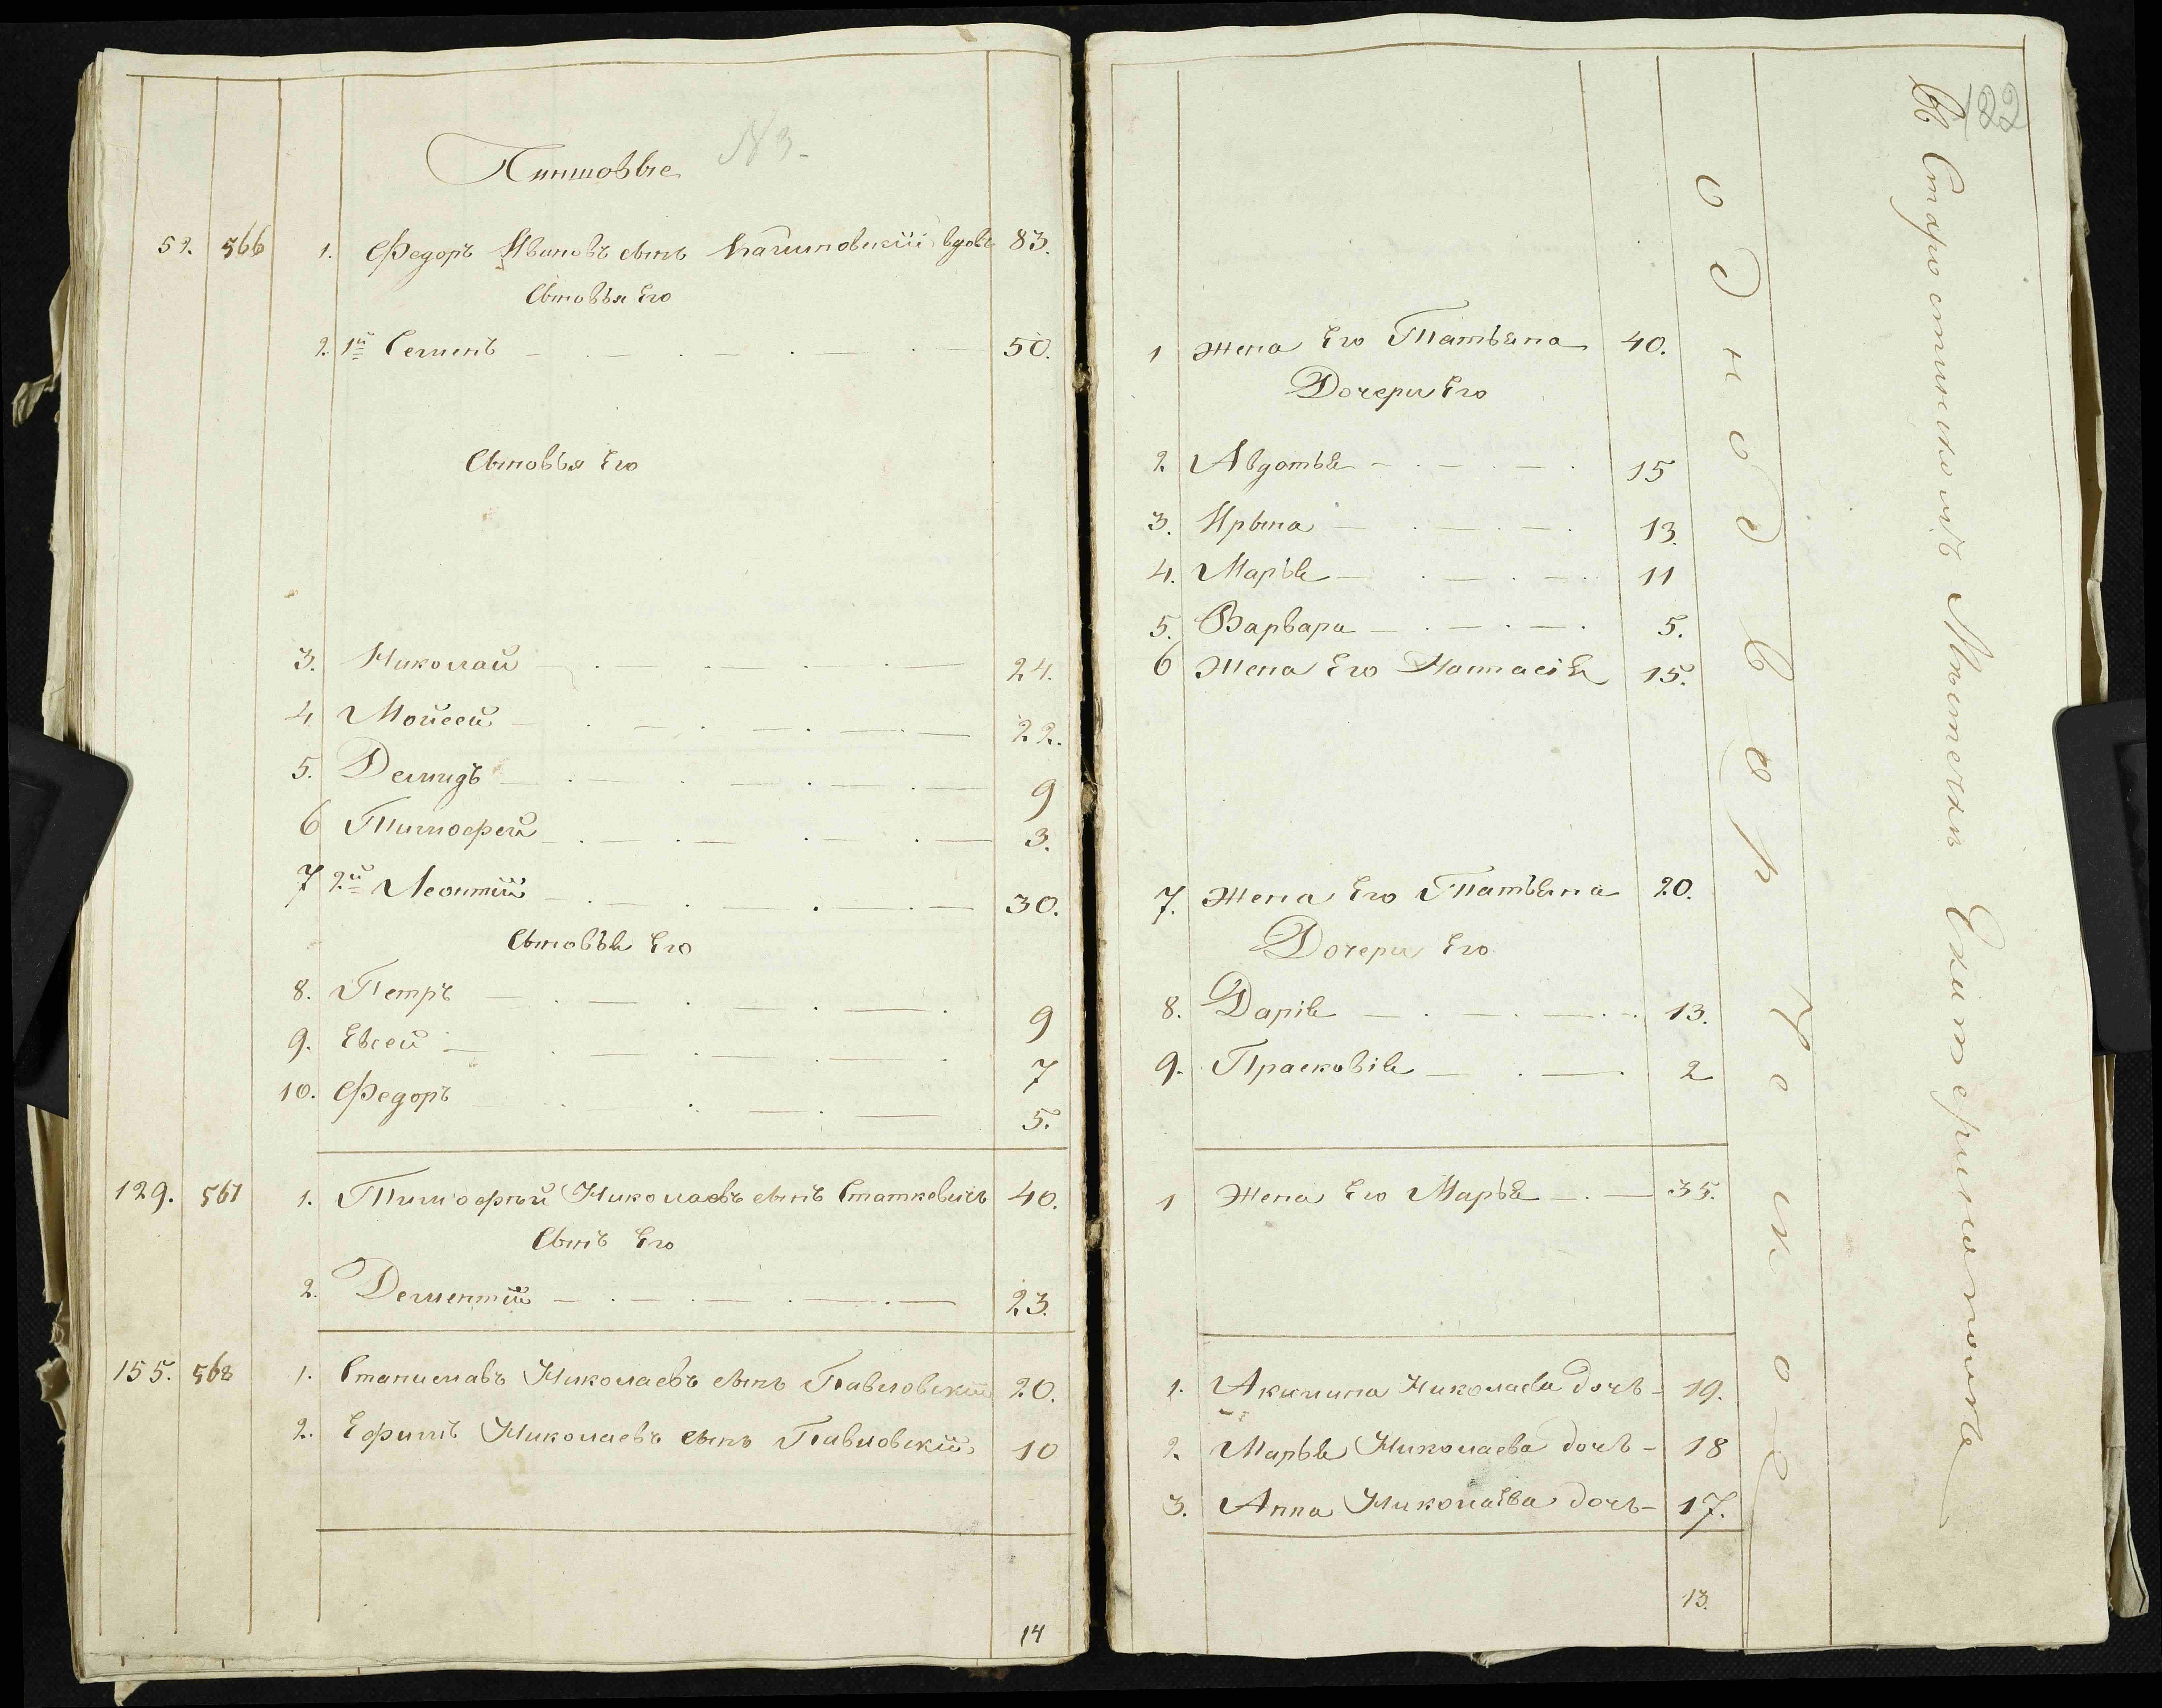 N 3.
Чиншовые
52. 566 1. Федоръ Ивановъ сынъ вдовъ 83.
Сыновья Его
2. 1й Семенъ 50.
Сыновья Его
3. Николай 24.
4 Мойсей 22.
5. Демидъ 9
6 Тимофей 3.
7 2й Леонтій 30.
Сыновья Его
8. Петръ 9
9. Евсей 7
10. Федоръ 5.
129. 567 1. Тимофѣй Николаевъ сынъ Статкевичъ 40.
Сынъ Его
2. Дементій 23.
155. 568 1. Станиславъ Николаевъ сынъ Павловскій 20.
2. Ефимъ Николаевъ сынъ Павловскій 10
14
122
1 Жена Его Татьяна 40.
Дочери Его
2. Авдотья 15
3. Ирына 13.
4. Марья 11
5. Варвара 5.
6 Жена Его Настасія 15.
7. Жена Его Татьяна 20.
Дочери Его
8. Дарія 13.
9. Прасковія 2
1 Жена Его Марья 35.
1. Акилина Николаева дочь 19.
2. Марья Николаева дочь 18
3. Анна Николаева дочь 17.
13.
однодворческое
Въ Староствинскомъ Мѣстечкѣ Екатеринополѣ